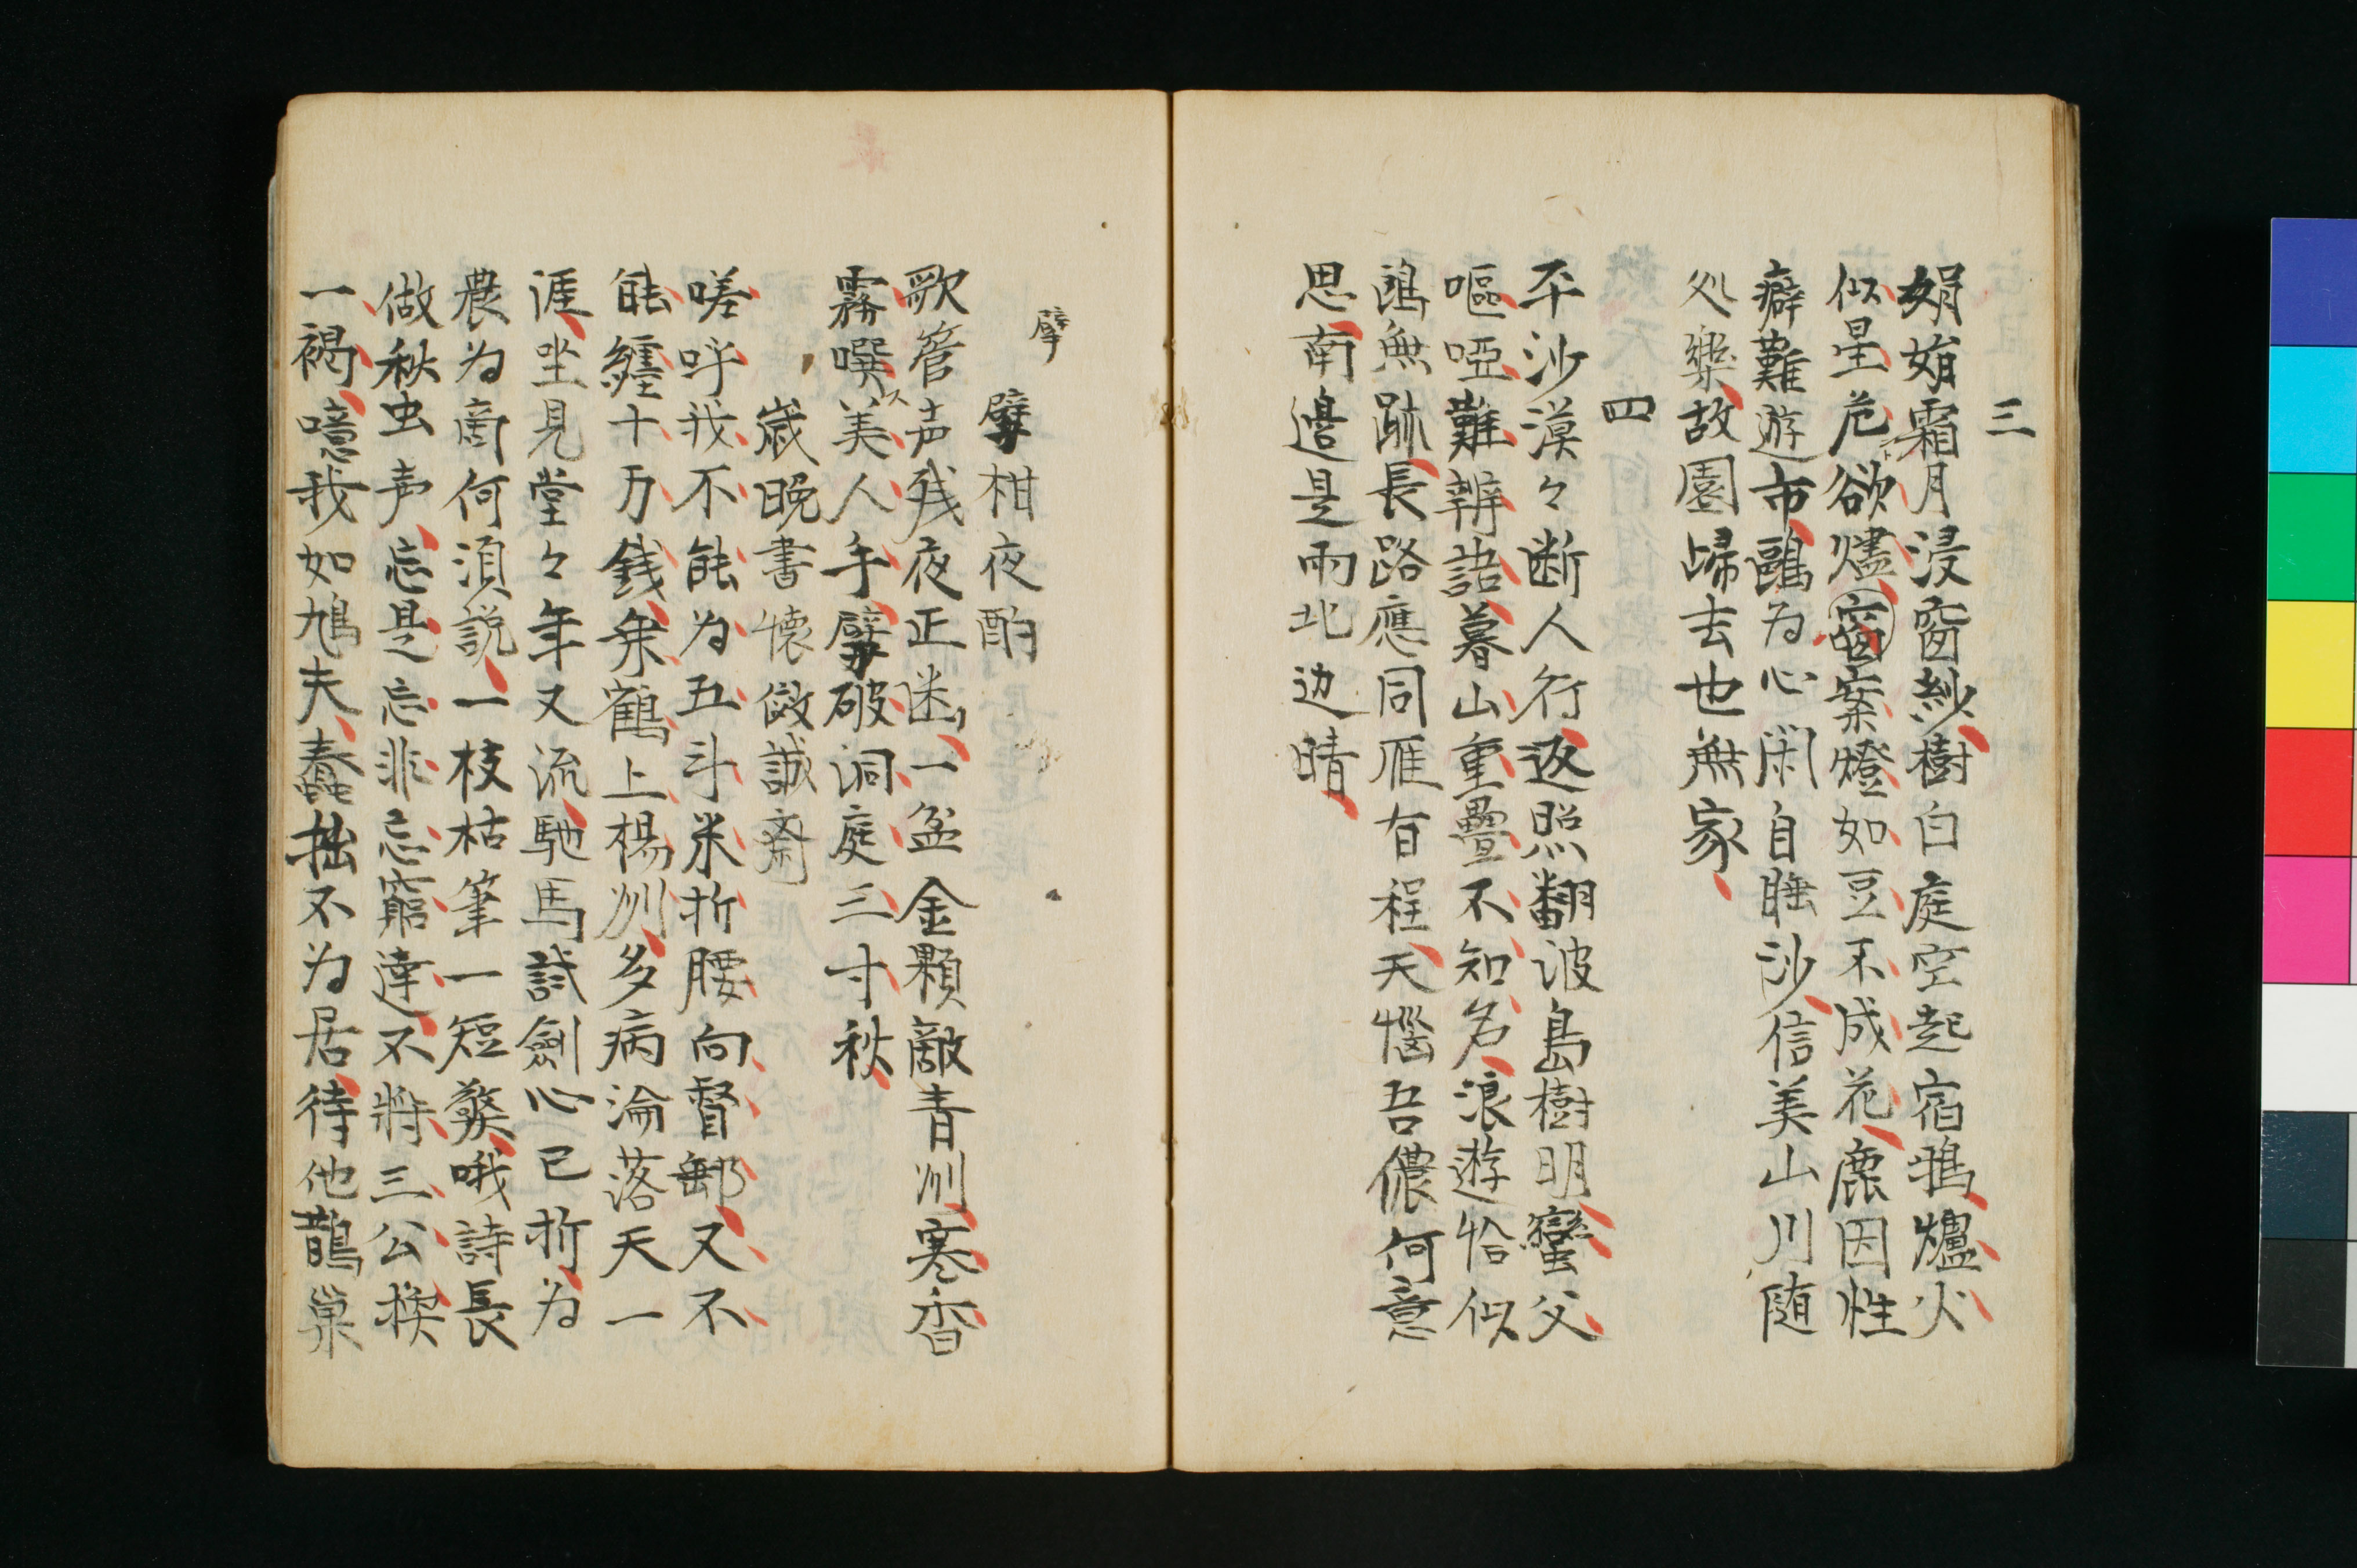 三
娟娟霜月浸窗紗樹白庭空起宿鴉爐火
似星危欲燼窗案燈如豆不成花鹿因性
癖難遊市鷗為心閑自睡沙信美山川随
処楽故園帰去也無家
四
平沙漠々断人行返照翻波島樹明蠻父
嘔啞難辨語暮山重疊不知名浪遊恰似
鷗無跡長路應同雁有程天惱吾儂何意
思南邉是雨北辺晴
擘
擘柑夜酌
歌管声残夜正迷一盆金顆敵青州寒香
霧噀美人手擘破洞庭三寸秋
歳晩書懐傚誠斎
嗟呼我不能為五斗米折腰向督郵又不
能纏十万銭乗鶴上楊州多病淪落天一
涯坐見堂々年又流馳馬試劍心已折為
農為商何須説一枝枯筆一短檠哦詩長
做秋虫声忘是忘非忘窮達不将三公換
一褐噫我如鳩夫蠢拙不為居待他鵲巣